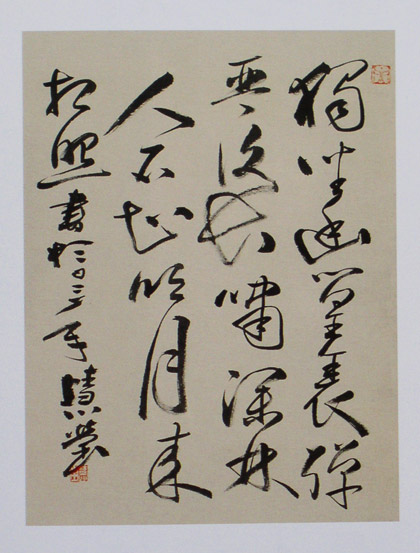 獨坐幽篁裏彈
琴復長嘯深林
人不知明月来
相照書於年